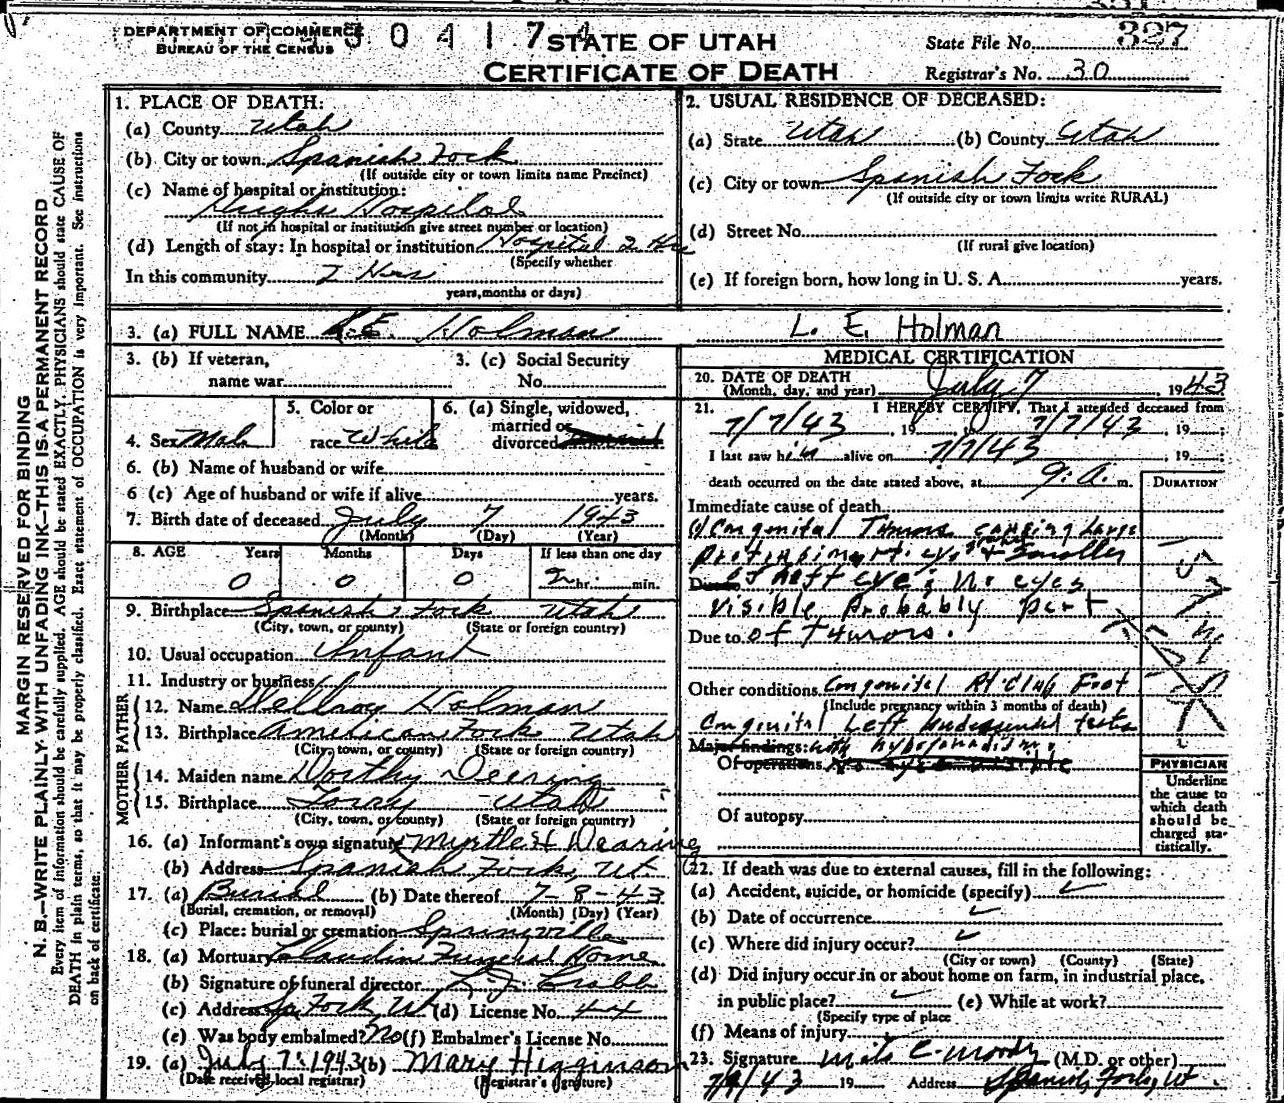 DEPARTMENT OF COMMERCE
BUREAU OF THE CENSUS
4 3 0 4 1 7 4
STATE OF UTAH
CERTIFICATE OF DEATH
State File No. 327
Registrar's No. 30
MARGIN RESERVED FOR BINDING
N. B.—WRITE PLAINLY WITH UNFADING INK—THIS IS A PERMANENT RECORD
Every item of information should be carefully supplied. AGE should be stated EXACTLY. PHYSICIANS should state CAUSE OF
DEATH in plain terms, so that it may be properly classified. Exact statement of OCCUPATION is very important. See instructions
on back of certificate.
1. PLACE OF DEATH:
(a) County Utah
(b) City or town Spanish Fork
(If outside city or town limits name Precinct)
(c) Name of hospital or institution:
Hughs Hospital
(If not in hospital or institution give street number or location)
(d) Length of stay: In hospital or institution Hospital 2 Hrs
(Specify whether
In this community 2 Hrs
years, months or days)
2. USUAL RESIDENCE OF DECEASED:
(a) State Utah (b) County Utah
(c) City or town Spanish Fork
(If outside city or town limits write RURAL)
(d) Street No.
(If rural give location)
(e) If foreign born, how long in U. S. A. years.
3. (a) FULL NAME L. E. Holman L. E. Holman
3. (b) If veteran, name war
3. (c) Social Security No.
4. Sex Male
5. Color or race White
6. (a) Single, widowed, married or divorced
6. (b) Name of husband or wife
6 (c) Age of husband or wife if alive years.
7. Birth date of deceased July 7 1943
(Month) (Day) (Year)
8. AGE Years Months Days If less than one day
0 0 0 2 hr. min.
9. Birthplace Spanish Fork Utah
(City, town, or county) (State or foreign country)
10. Usual occupation Infant
11. Industry or business
FATHER
12. Name Holman
13. Birthplace American Fork Utah
(City, town, or county) (State or foreign country)
MOTHER
14. Maiden name Dorthy Deering
15. Birthplace Torry Utah
(City, town, or county) (State or foreign country)
16. (a) Informant's own signature Myrtle H Dearing
(b) Address Spanish Fork, Ut
17. (a) Burial (b) Date thereof 7-8-43
(Burial, cremation, or removal) (Month) (Day) (Year)
(c) Place: burial or cremation Springville
18. (a) Mortuary Claudin Funeral Home
(b) Signature of funeral director L J Crabb
(c) Address Sp. Fork, Ut (d) License No. 44
(e) Was body embalmed? No (f) Embalmer's License No.
19. (a) July 7: 1943 (b) Mary Higginson
(Date received local registrar) (Registrar's signature)
MEDICAL CERTIFICATION
20. DATE OF DEATH July 7 1943
(Month, day, and year)
21. I HEREBY CERTIFY, That I attended deceased from
7/7/43, 19 to 7/7/43, 19
I last saw him alive on 7/7/43, 19
death occurred on the date stated above, at 9. a. m.
DURATION
Immediate cause of death
Congenital Tumors causing large
protruding rt. eye & smaller
of left eye; no eyes
visible probably part
Due to of tumors.
Other conditions Congenital Rt. Club Foot
(Include pregnancy within 3 months of death)
Congenital Left undescended testa
Major findings: with
Of operations No eyes visible
Of autopsy
PHYSICIAN
Underline the cause to which death should be charged statistically.
22. If death was due to external causes, fill in the following:
(a) Accident, suicide, or homicide (specify) ✓
(b) Date of occurrence ✓
(c) Where did injury occur? ✓
(City or town) (County) (State)
(d) Did injury occur in or about home on farm, in industrial place,
in public place? ✓ (e) While at work?
(Specify type of place
(f) Means of injury
23. Signature C. Moody (M.D. or other)
7/9/43 19 Address Spanish Fork, Ut.